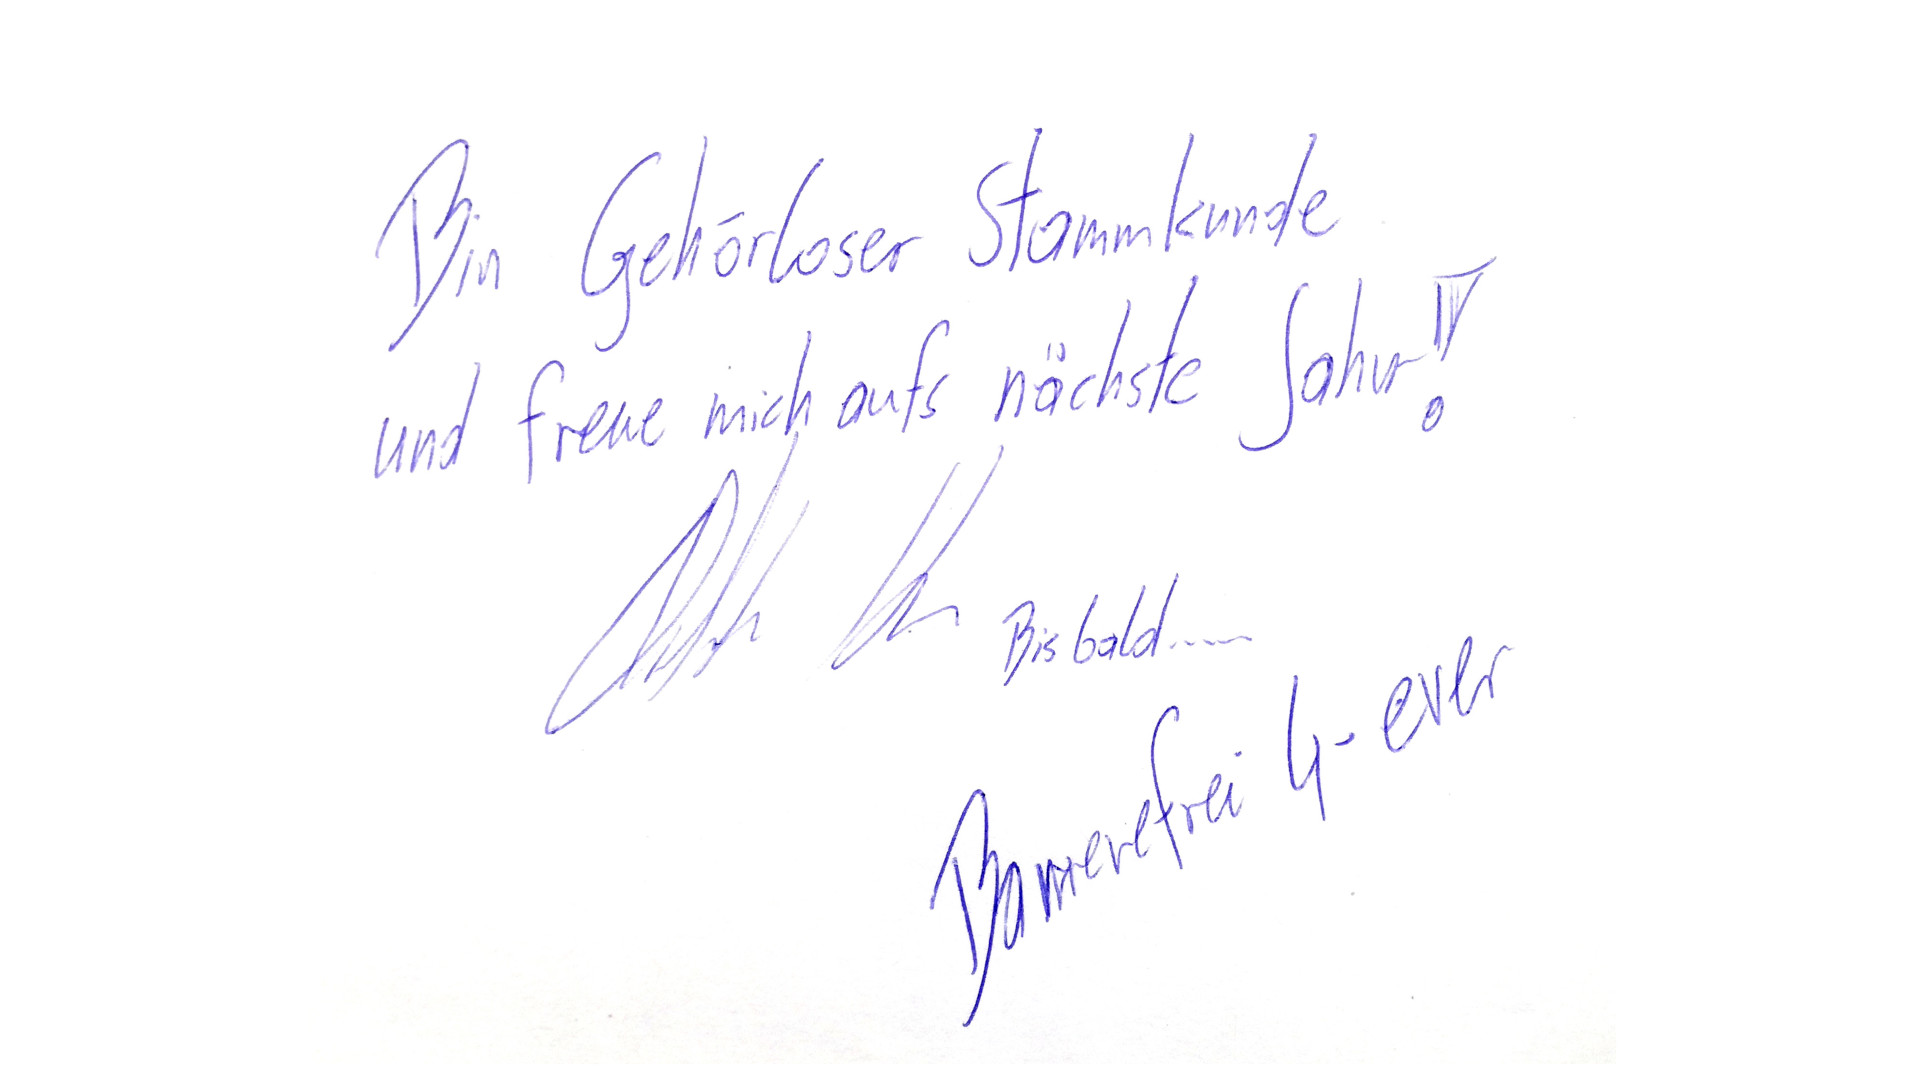 Bin Gehörloser Stammkunde
und freue mich aufs nächste Jahr!
Bis bald.....
Barrierefrei 4-ever